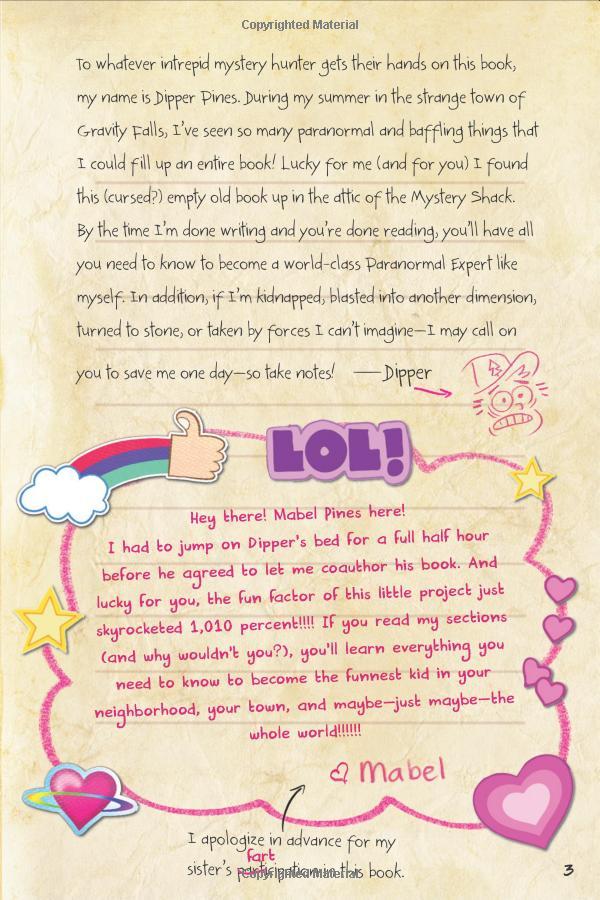 Copyrighted Material
To whatever intrepid mystery hunter gets their hands on this book,
my name is Dipper Pines. During my summer in the strange town of
Gravity Falls, I've seen so many paranormal and baffling things that
I could fill up an entire book! Lucky for me (and for you) I found
this (cursed?) empty old book up in the attic of the Mystery Shack.
By the time I'm done writing and you're done reading, you'll have all
you need to know to become a world-class Paranormal Expert like
myself. In addition, if I'm kidnapped, blasted into another dimension,
turned to stone, or taken by forces I can't imagine—I may call on
you to save me one day—so take notes! —Dipper
LOL!
Hey there! Mabel Pines here!
I had to jump on Dipper's bed for a full half hour
before he agreed to let me coauthor his book. And
lucky for you, the fun factor of this little project just
skyrocketed 1,010 percent!!!! If you read my sections
(and why wouldn't you?), you'll learn everything you
need to know to become the funnest kid in your
neighborhood, your town, and maybe—just maybe—the
whole world!!!!!!
Mabel
I apologize in advance for my
fart
sister's participation in this book.
Copyrighted Material
3